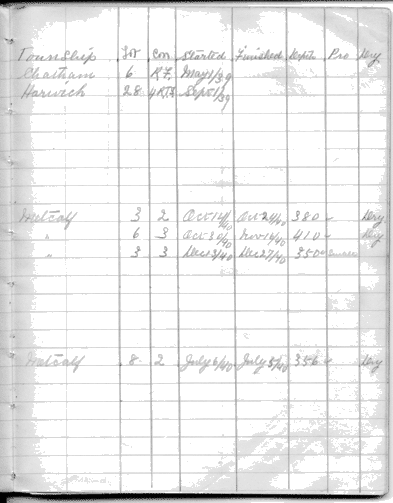 Township Lot Con Started Finished Depth Pro Dry
Chatham 6 R.F. May 1/39
Harwich 28 4 Sept 1/39
Metcalf 3 2 Oct 14/40 Oct 24/40 380 - Dry
" 6 3 Oct 30/40 Nov 14/40 410 - Dry
" 3 3 Dec 13/40 Dec 27/40 350
Metcalf 8 2 July 6/40 July 5/40 356 - Dry